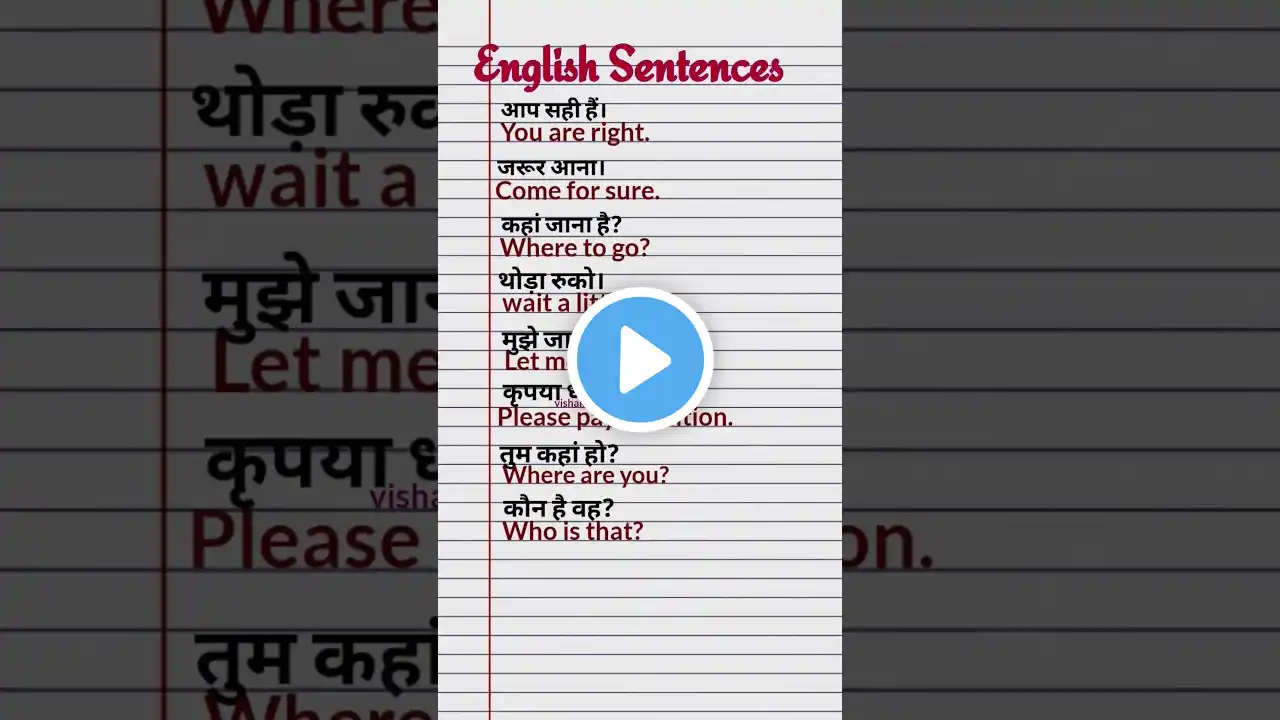 English Sentences
आप सही हैं।
You are right.
जरूर आना।
Come for sure.
कहां जाना है?
Where to go?
थोड़ा रुको।
wait a
मुझे
Let
कृपया
Please
तुम कहां हो?
Where are you?
कौन है वह?
Who is that?